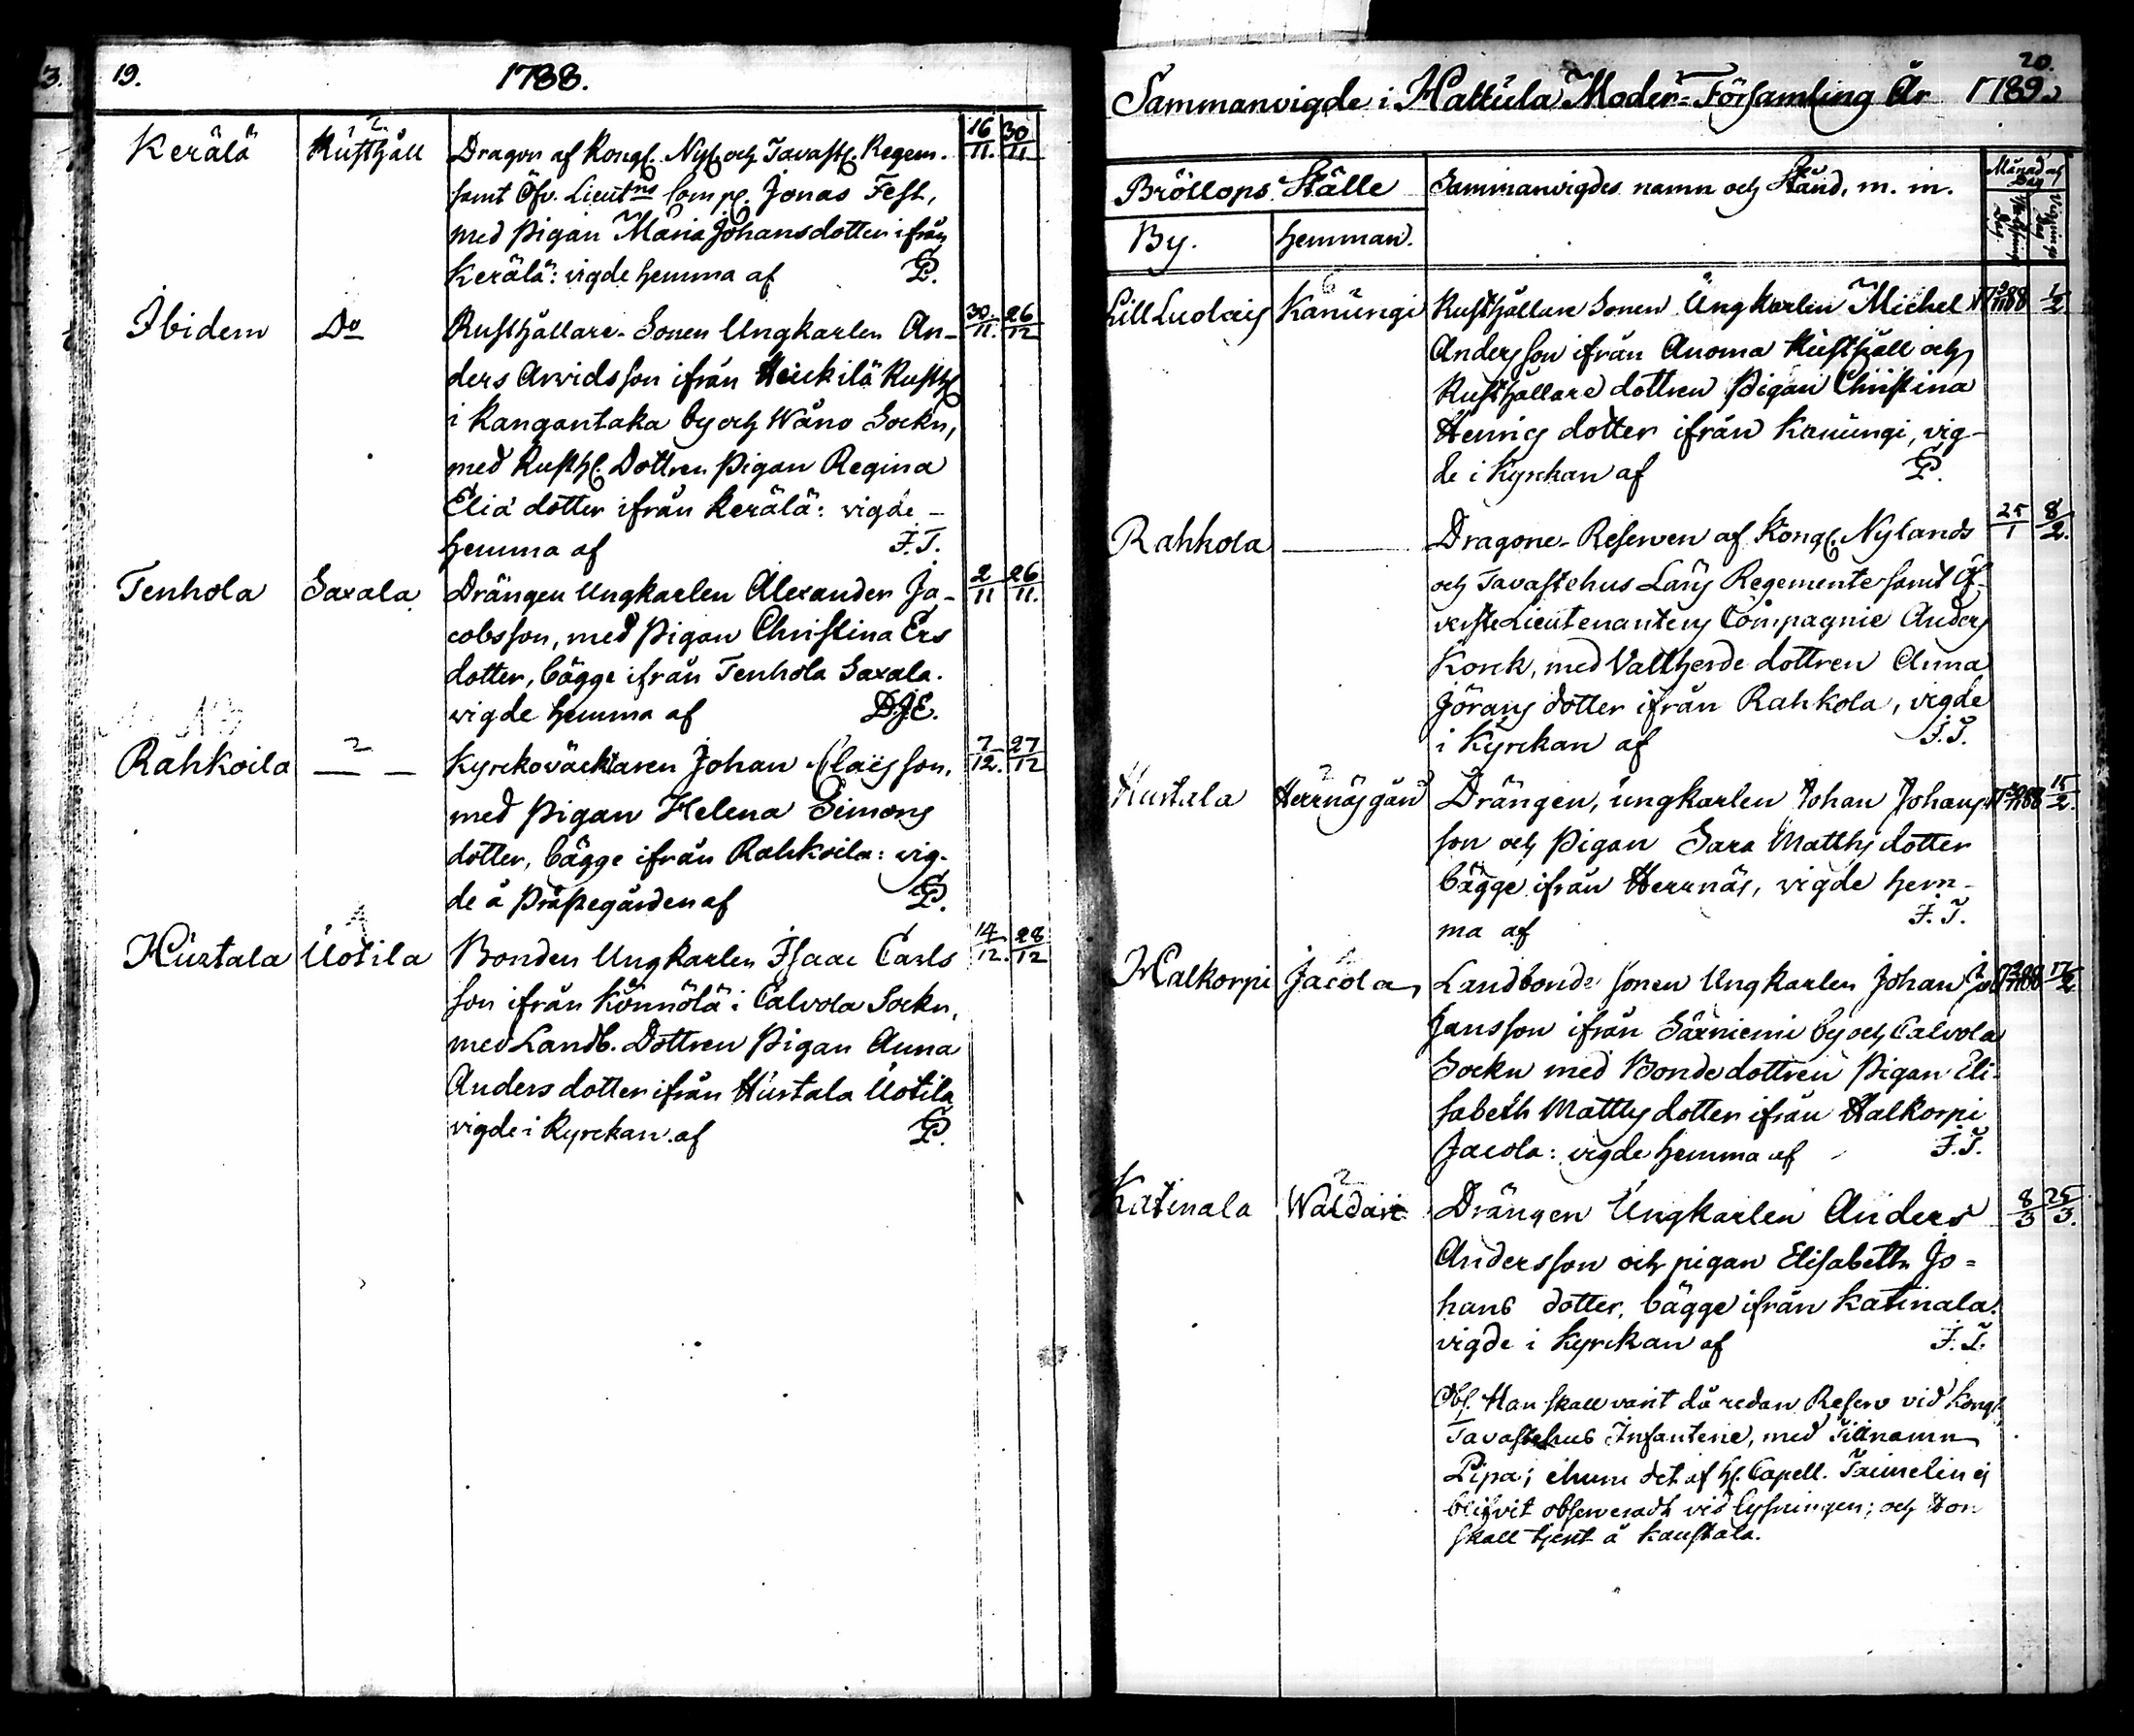 3.
19. 1788.
2.
Kerälä Rusthåll Dragon af Kongl. Nyl. och Tavastl. Regem. 16/11. 30/11
samt Öfv. Lieutns Comp. Jonas Fest,
med Pigan Maria Johansdotter ifrån
Kerälä: vigde hemma af P.
Ibidem Do Rusthållare-Sonen Ungkarlen An- 30/11. 26/12
ders Arvidsson ifrån Heickilä Rusth
i Kangantaka by och Wåno Sockn,
med Rusth. Dottren Pigan Regina
Eliä dotter ifrån Kerälä: vigde -
hemma af F.T.
Tenhola Saxala Drängen Ungkarlen Alexander Ja- 2/11 26/11.
cobsson, med Pigan Christina Ers
dotter, bägge ifrån Tenhola Saxala.
vigde hemma af D.J.E.
2
Rahkoila — — Kyrckoväcktaren Johan Claësson, 7/12. 27/12
med Pigan Helena Simons
dotter, bägge ifrån Rahkoila: vig-
de å Prästegården af P.
1
Hurtala Uotila Bonden Ungkarlen Isaac Carls 14/12. 28/12
son ifrån Könnölä i Calvola Sockn,
med Landb. Dottren Pigan Anna
Anders dotter ifrån Hurtala Uotila
vigde i Kyrckan af P.
20.
Sammanvigde i Hattula Moder-Församling År 1789.
Bröllops Ställe Sammanvigdes namn och Stånd, m. m. Månad och Dag
By. Hemman.
6
Lill Luolais Kanungi Rusthållare Sonen Ungkarlen Michel 1788 1/2
Andersson ifrån Anoma Rusthåll och
Rusthållare dottren Pigan Christina
Henrics dotter ifrån Kanungi, vig-
de i Kyrckan af P.
Rahkola — Dragone-Reserven af Kongl. Nylands 25/1 8/2.
och Tavastehus Läns Regemente samt Öf-
verste Lieutenantens Compagnie Anders
Konck, med Vallherde dottren Anna
Jörans dotter ifrån Rahkola, vigde
i Kyrckan af F.T.
2
Hurtala Herrnäsgård Drängen, ungkarlen Johan Johans 1788 15/2.
son och Pigan Sara Matths dotter
bägge ifrån Herrnäs, vigde hem-
ma af F.T.
Halkorpi Jacola Landbonde sonen Ungkarlen Johan Jo 1788 17/2
hansson ifrån Särniemi by och Calvola
Sockn med Bonde dottren Pigan Eli-
sabeth Matths dotter ifrån Halkorpi
Jacola: vigde hemma af F.T.
2
Katinala Waldari Drängen Ungkarlen Anders 8/3 25/3.
Andersson och pigan Elisabeth Jo=
hans dotter, bägge ifrån Katinala.
vigde i Kyrckan af F.T.
Obs. Han skall varit då redan Reserv vid Kongl.
Tavastehus Infanterie, med Tillnamn
Pipa; ehuru det af H. Capell. Taimelin ej
blifvit observeradt vid lysningen; och Hon
skall tjent å Kaustala.